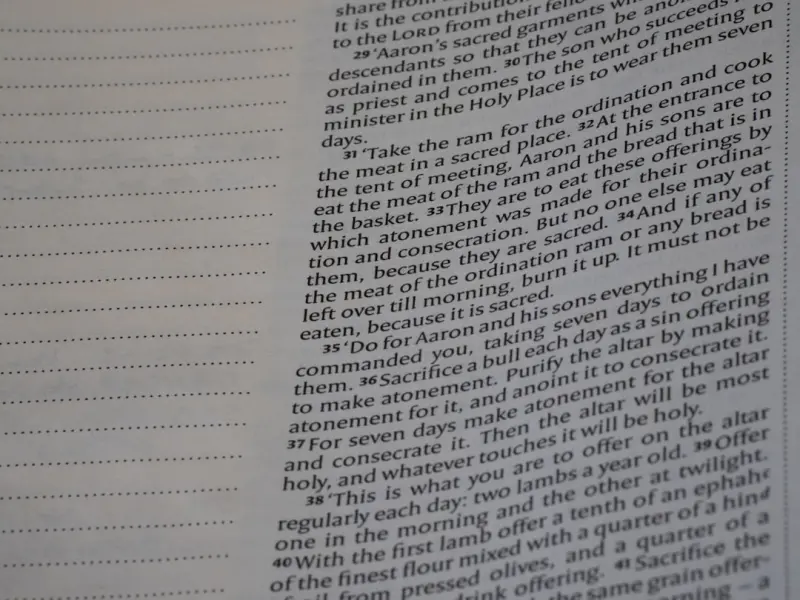 share from
It is the contribution
to the LORD from their fello
29 ‘Aaron’s sacred garments wi
descendants so that they can be anoin
ordained in them. 30 The son who succeeds
as priest and comes to the tent of meeting to
minister in the Holy Place is to wear them seven
days.
31 ‘Take the ram for the ordination and cook
the meat in a sacred place. 32 At the entrance to
the tent of meeting, Aaron and his sons are to
eat the meat of the ram and the bread that is in
the basket. 33 They are to eat these offerings by
which atonement was made for their ordina-
tion and consecration. But no one else may eat
them, because they are sacred. 34 And if any of
the meat of the ordination ram or any bread is
left over till morning, burn it up. It must not be
eaten, because it is sacred.
35 ‘Do for Aaron and his sons everything I have
commanded you, taking seven days to ordain
them. 36 Sacrifice a bull each day as a sin offering
to make atonement. Purify the altar by making
atonement for it, and anoint it to consecrate it.
37 For seven days make atonement for the altar
and consecrate it. Then the altar will be most
holy, and whatever touches it will be holy.
38 ‘This is what you are to offer on the altar
regularly each day: two lambs a year old. 39 Offer
one in the morning and the other at twilight.
40 With the first lamb offer a tenth of an ephahe
of the finest flour mixed with a quarter of a hind
of oil from pressed olives, and a quarter of a
drink offering. 41 Sacrifice the
the same grain offer-
morning – a